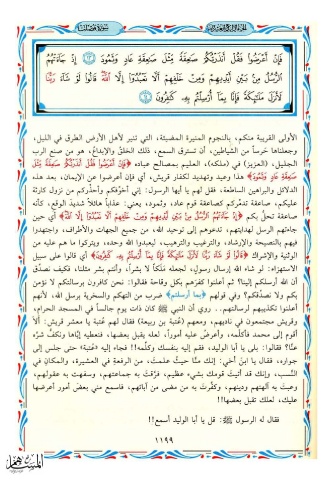 فَإِنْ أَعْرَضُوا فَقُلْ أَنذَرْتُكُمْ صَاعِقَةً مِّثْلَ صَاعِقَةِ عَادٍ وَثَمُودَ ﴿١٣﴾ إِذْ جَاءَتْهُمُ
الرُّسُلُ مِن بَيْنِ أَيْدِيهِمْ وَمِنْ خَلْفِهِمْ أَلَّا تَعْبُدُوا إِلَّا اللَّهَ قَالُوا لَوْ شَاءَ رَبُّنَا
لَأَنزَلَ مَلَائِكَةً فَإِنَّا بِمَا أُرْسِلْتُم بِهِ كَافِرُونَ ﴿١٤﴾
الأولى القريبة منكم، بالنجوم المنيرة المضيئة، التي تنير لأهل الأرض الطرق في الليل،
وجعلناها حرساً من الشياطين، أن تسترق السمع، ذلك الخلق والإبداع، هو من صنع الرب
الجليل، (العزيز) في (ملكه)، العليم بمصالح عباده ﴿فَإِنْ أَعْرَضُوا فَقُلْ أَنذَرْتُكُمْ صَاعِقَةً مِّثْلَ
صَاعِقَةِ عَادٍ وَثَمُودَ﴾ هذا وعيد وتهديد لكفار قريش، أي فإن أعرضوا عن الإيمان، بعد هذه
الدلائل والبراهين الساطعة، فقل لهم يا أيها الرسول: إني أخوّفكم وأحذركم من نزول كارثة
عليكم، صاعقة تدمركم كصاعقة قوم عاد، وثمود، يعني: عذاباً هائلاً شديد الوقع، كأنه
صاعقة تحل بكم ﴿إِذْ جَاءَتْهُمُ الرُّسُلُ مِن بَيْنِ أَيْدِيهِمْ وَمِنْ خَلْفِهِمْ أَلَّا تَعْبُدُوا إِلَّا اللَّهَ﴾ أي حين
جاءتهم الرسل لهدايتهم، تدعوهم إلى توحيد الله، من جميع الجهات والأطراف، واجتهدوا
فيهم بالنصيحة والإرشاد، والترغيب والترهيب، ليعبدوا الله وحده، ويتركوا ما هم عليه من
الوثنية والإشراك ﴿قَالُوا لَوْ شَاءَ رَبُّنَا لَأَنزَلَ مَلَائِكَةً فَإِنَّا بِمَا أُرْسِلْتُم بِهِ كَافِرُونَ﴾ أي قالوا على سبيل
الاستهزاء: لو شاء الله إرسال رسول، لجعله مَلَكاً لا بشراً، وأنتم بشر مثلنا، فكيف نصدّق
أن الله أرسلكم إلينا؟ ثم أعلنوا كفرهم بكل وقاحة فقالوا: نحن كافرون برسالتكم لا نؤمن
بكم ولا نصدّقكم؟ وفي قولهم ﴿بِمَا أُرْسِلْتُم﴾ ضرب من التهكم والسخرية برسل الله، لأنهم
أعلنوا تكذيبهم لرسالتهم.. روي أن النبي ﷺ كان ذات يوم جالساً في المسجد الحرام،
وقريش مجتمعون في ناديهم، ومعهم (عُتبة بن ربيعة) فقال لهم عُتبة يا معشر قريش: ألا
أقوم إلى محمد فأكلمه، وأعرض عليه أموراً، لعله يقبل بعضها، فنعطيه إيّاها ونكُفّ شرّه
عنا؟ فقالوا: بلى يا أبا الوليد، فقم إليه بنفسك وكلّمه!! فجاء إليه «عُتبة» حتى جلس إلى
جواره، فقال يا ابن أخي: إنك منّا حيث علمت، من الرفعة في العشيرة، والمكان في
النسب، وإنك قد أتيت قومك بشيء عظيم، فرّقت به جماعتهم، وسفهت به عقولهم،
وعبت به آلهتهم ودينهم، وكفّرت به من مضى من آبائهم، فاسمع مني بعض أمور أعرضها
عليك، لعلك تقبل بعضها!!
فقال له الرسول ﷺ: قل يا أبا الوليد أسمع!!
١١٩٩